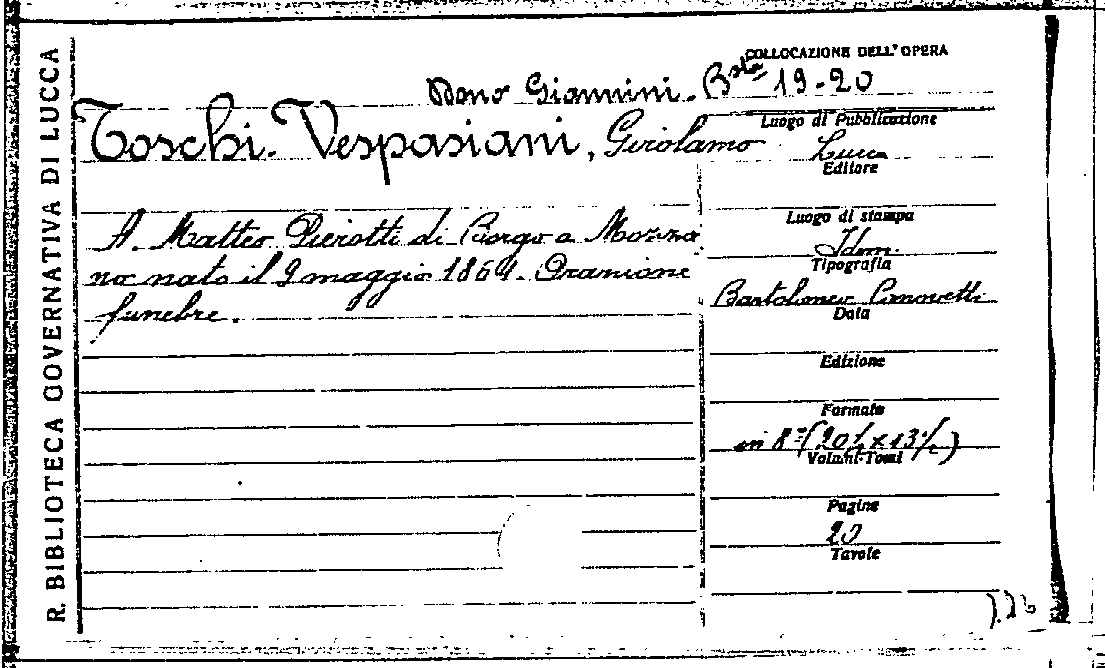 R. BIBLIOTECA GOVERNATIVA DI LUCCA
COLLOCAZIONE DELL'OPERA
Dono Giannini. Bsta 19-20
Toschi-Vespasiani, Girolamo
A. Matteo Pierotti di Borgo a Mozza
no nato il 9 maggio 1864. Orazione
funebre.
Luogo di Pubblicazione
Lucca
Editore
Luogo di stampa
Idem.
Tipografia
Bartolomeo Canovetti
Data
Edizione
Formato
in 8º (20½ x 13½)
Volumi-Tomi
Pagine
20
Tavole